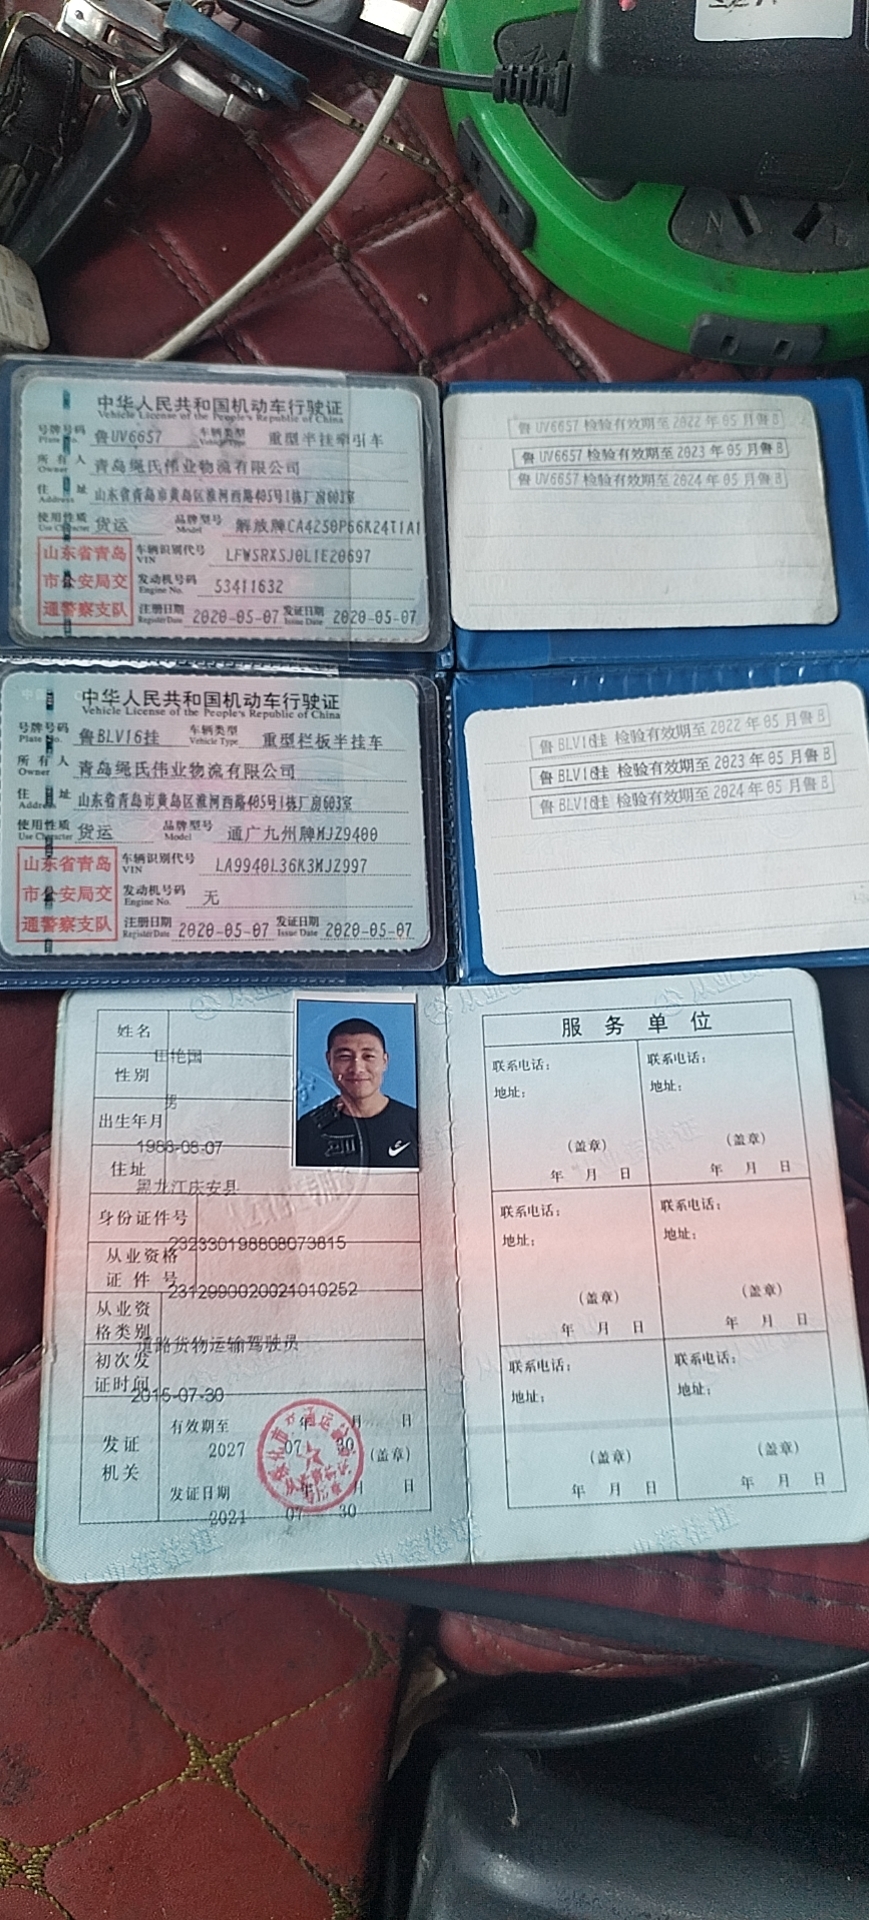 N
中华人民共和国机动车行驶证
Vehicle License of the People's Republic of China
号牌号码 鲁UV6657 车辆类型 重型半挂牵引车
Plate No. Vehicle Type
所有人 青岛绳氏伟业物流有限公司
Owner
住址 山东省青岛市黄岛区淮河西路405号1栋厂房603室
Address
使用性质 货运 品牌型号 解放牌CA4250P66K24T1A1
Use Character Model
山东省青岛
市公安局交
通警察支队
车辆识别代号 LFWSRXSJ0L1E20697
VIN
发动机号码 53411632
Engine No.
注册日期 2020-05-07 发证日期 2020-05-07
Register Date Issue Date
鲁UV6657 检验有效期至2022年05月鲁B
鲁UV6657 检验有效期至2023年05月鲁B
鲁UV6657 检验有效期至2024年05月鲁B
中华人民共和国机动车行驶证
Vehicle License of the People's Republic of China
号牌号码 鲁BLV16挂 车辆类型 重型栏板半挂车
Plate No. Vehicle Type
所有人 青岛绳氏伟业物流有限公司
Owner
住址 山东省青岛市黄岛区淮河西路405号1栋厂房603室
Address
使用性质 货运 品牌型号 通广九州牌MJZ9400
Use Character Model
山东省青岛
市公安局交
通警察支队
车辆识别代号 LA9940L36K3MJZ997
VIN
发动机号码 无
Engine No.
注册日期 2020-05-07 发证日期 2020-05-07
Register Date Issue Date
鲁BLV16挂 检验有效期至2022年05月鲁B
鲁BLV16挂 检验有效期至2023年05月鲁B
鲁BLV16挂 检验有效期至2024年05月鲁B
姓名
田艳国
性别
男
出生年月
1988-08-07
住址
黑龙江庆安县
身份证件号
232330198808073815
从业资格
证件号
2312990020021010252
从业资
格类别
道路货物运输驾驶员
初次发
证时间
2015-07-30
发证
机关
有效期至 年 月 日
2027 07 30
(盖章)
发证日期 年 月 日
2021 07 30
服务单位
联系电话: 联系电话:
地址: 地址:
(盖章) (盖章)
年 月 日 年 月 日
联系电话: 联系电话:
地址: 地址:
(盖章) (盖章)
年 月 日 年 月 日
联系电话: 联系电话:
地址: 地址:
(盖章) (盖章)
年 月 日 年 月 日